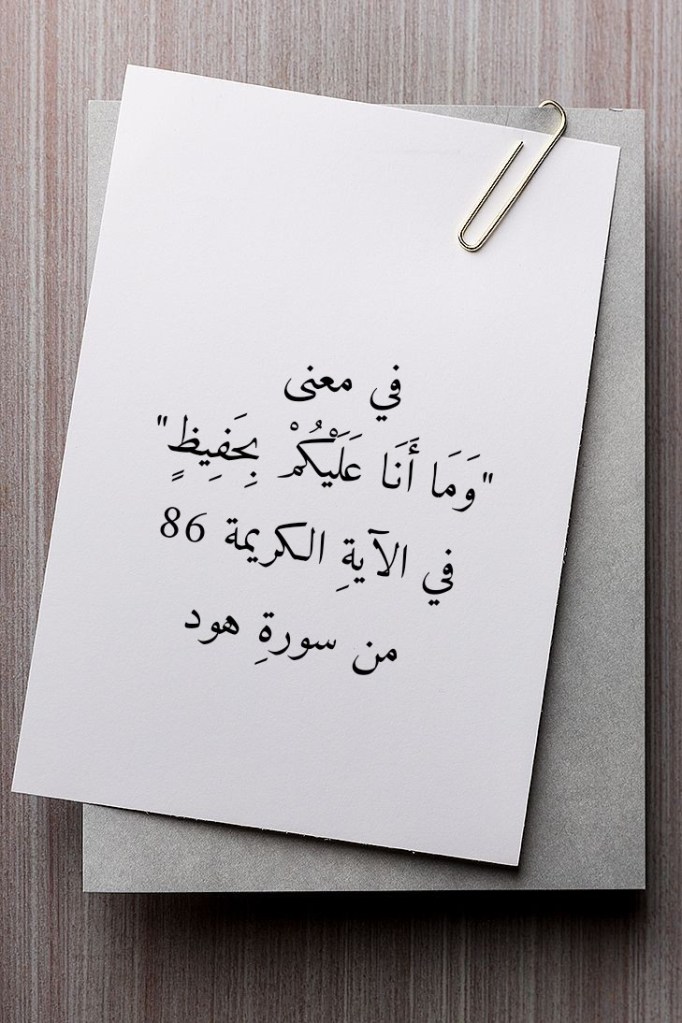 في معنى
"وَمَا أَنَا عَلَيْكُمْ بِحَفِيظٍ"
في الآيةِ الكريمة 86
من سورةِ هود